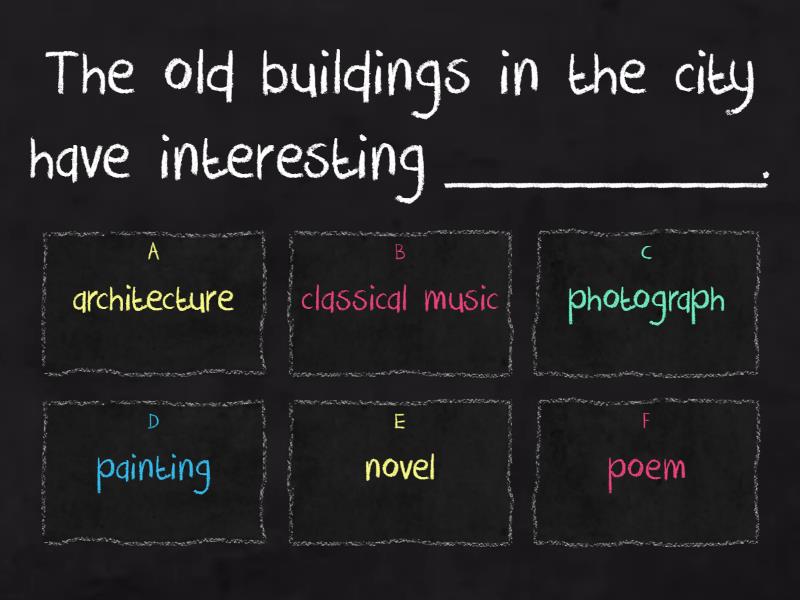 The old buildings in the city
have interesting ____________.
A
architecture
B
classical music
C
photograph
D
painting
E
novel
F
poem